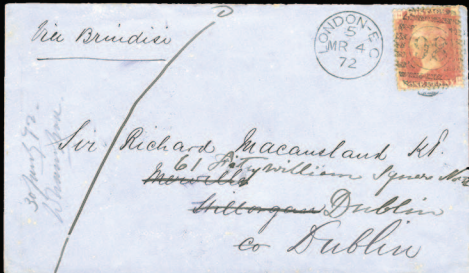 Via Brindisi
LONDON-E.C
5
MR 4
72
98
Sir Richard Macausland Kt.
61 Fitzwilliam Square
Merville
Stillorgan Dublin
co Dublin